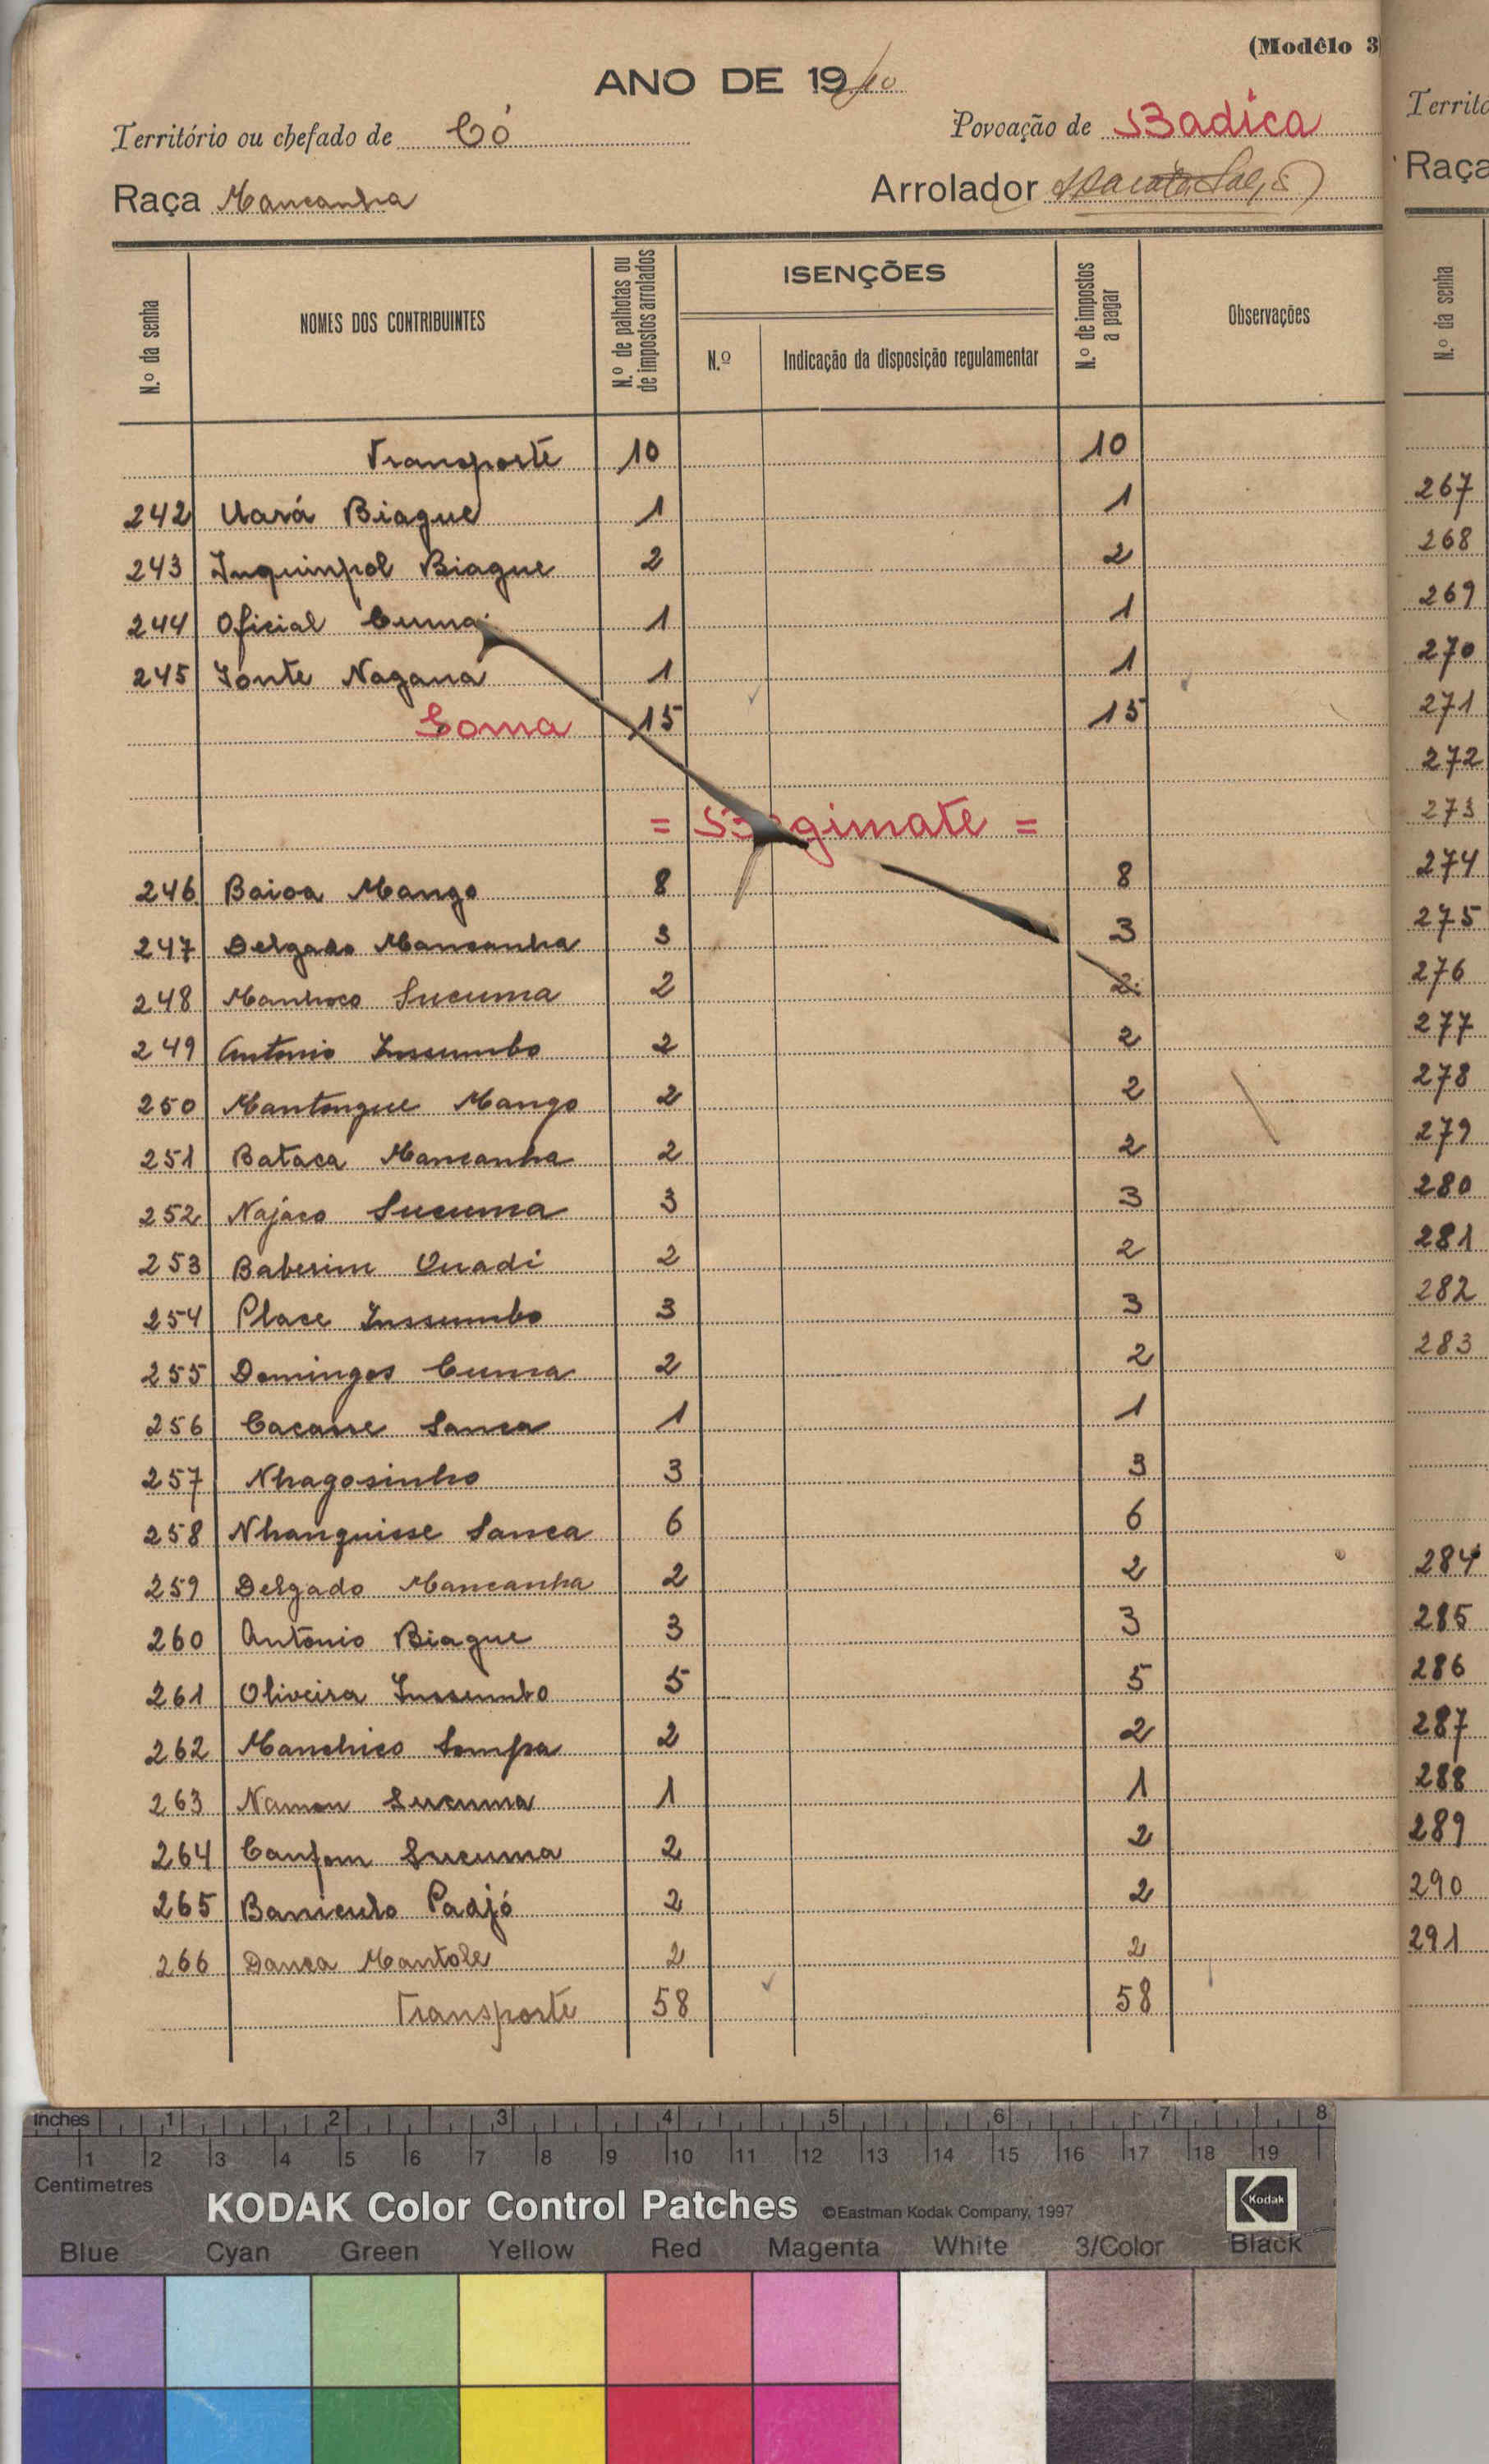 (Modêlo 3
ANO DE 1940
Território ou chefado de Có
Povoação de Badica
Raça Mancanha
Arrolador
N.º da senha
NOMES DOS CONTRIBUINTES
N.º de palhotas ou de impostos arrolados
ISENÇÕES
N.º
Indicação da disposição regulamentar
N.º de impostos a pagar
Observações
Transporte 10 10
242 Uará Biague 1 1
243 Inquimpol Biague 2 2
244 Oficial Cuma 1 1
245 Fonte Nagana 1 1
Soma 15 15
= Begimate =
246 Baioa Mango 8 8
247 Delgado Mancanha 3 3
248 Manhoco Sucuma 2 2
249 Antonio Insumbo 2 2
250 Mantongue Mango 2 2
251 Bataca Mancanha 2 2
252 Najaco Sucuma 3 3
253 Baberim Quadi 2 2
254 Place Inssumbo 3 3
255 Domingos Cuma 2 2
256 Cacasse Sanca 1 1
257 Nhagosinho 3 3
258 Nhanquisse Sanca 6 6
259 Delgado Mancanha 2 2
260 Antonio Biague 3 3
261 Oliveira Inssumbo 5 5
262 Manchico Sompa 2 2
263 Namon Sucuma 1 1
264 Canfom Sucuma 2 2
265 Baniculo Padjó 2 2
266 Danca Mantole 2 2
Transporte 58 58
Territo
Raça
N.º da senha
267
268
269
270
271
272
273
274
275
276
277
278
279
280
281
282
283
284
285
286
287
288
289
290
291
inches 1 2 3 4 5 6 7 8
1 2 3 4 5 6 7 8 9 10 11 12 13 14 15 16 17 18 19
Centimetres
KODAK Color Control Patches ©Eastman Kodak Company, 1997 Kodak
Blue Cyan Green Yellow Red Magenta White 3/Color Black